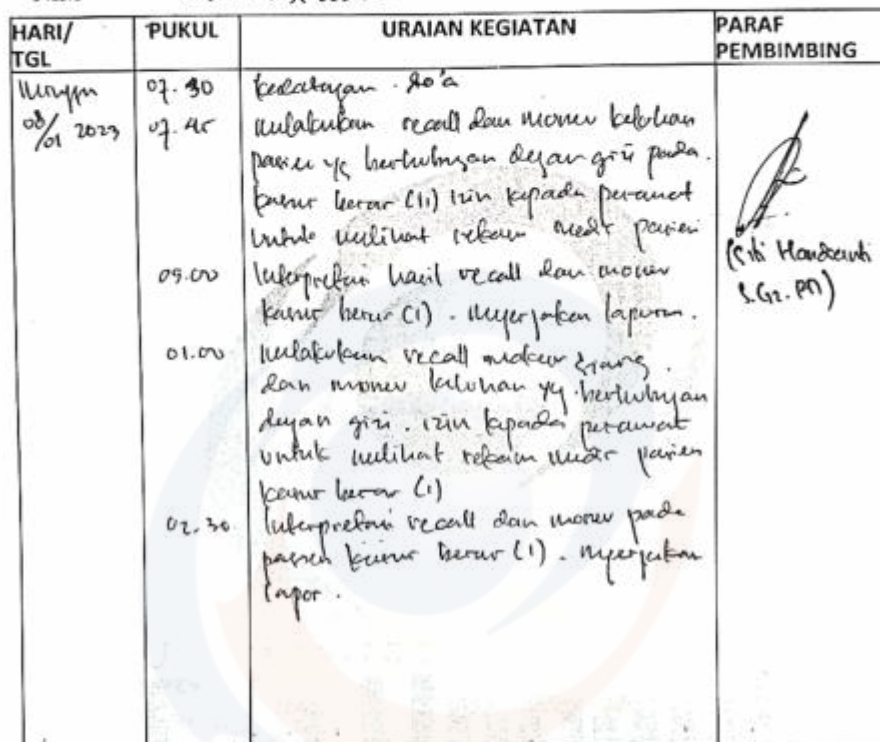 HARI/ TGL PUKUL URAIAN KEGIATAN PARAF PEMBIMBING
Minggu 07.30 kedatangan. do'a
08/01 2023 07.45 melakukan recall dan monev keluhan
pasien yg berhubungan dengan gizi pada
kasus besar (1) izin kepada perawat
untuk melihat rekam medis pasien
(Siti Handayanti
S.Gz. RD)
09.00 Interpretasi hasil recall dan monev
kasus besar (1). mengerjakan laporan.
01.00 melakukan recall makan siang
dan monev keluhan yg berhubungan
dengan gizi. izin kepada perawat
untuk melihat rekam medis pasien
kasus besar (1)
02.30 Interpretasi recall dan monev pada
pasien kasus besar (1). mengerjakan
lapor.